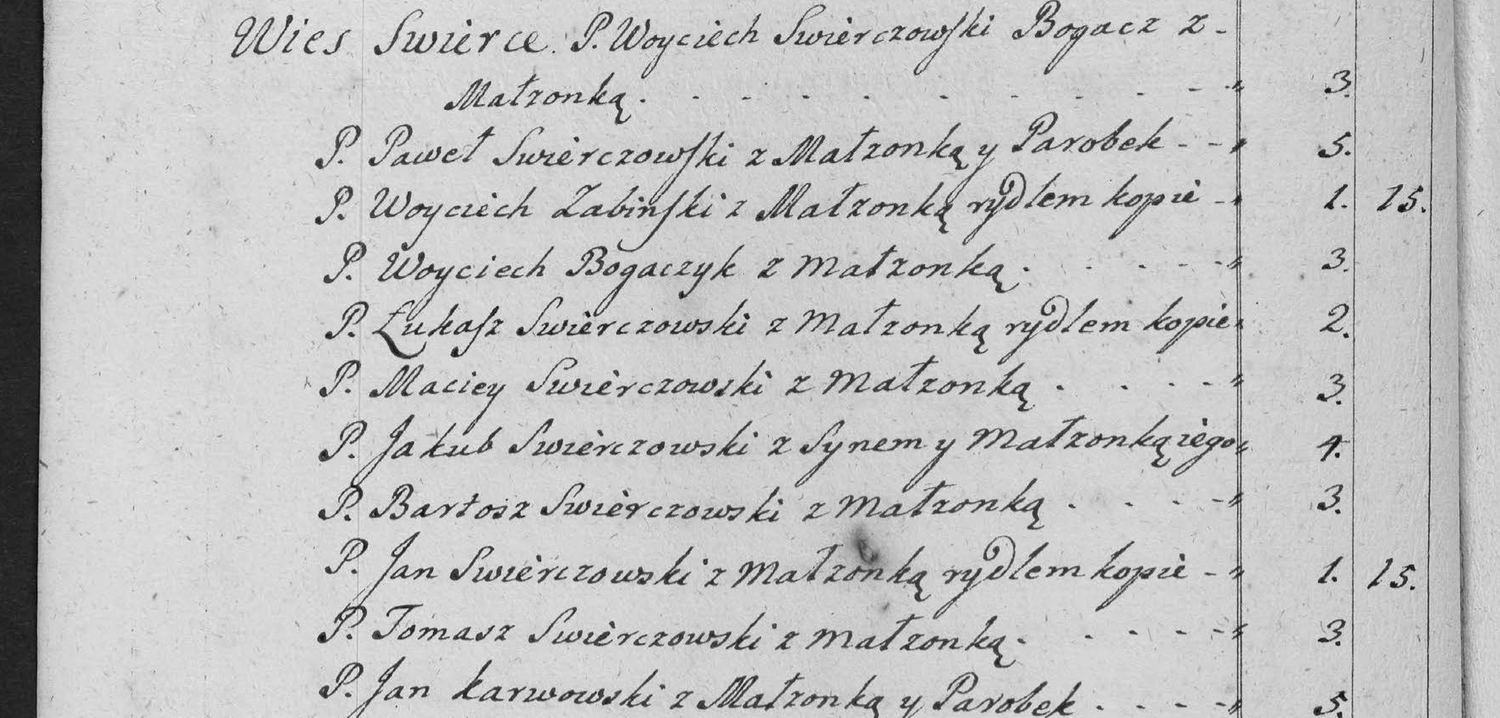 Wies Swierce. P. Woyciech Swierczowſki Bogacz z -
Małzonką . - - - - - - - - - - " 3.
P. Paweł Swierczowſki z Małzonką y Parobek - - " 5.
P. Woyciech Zabinſki z Małzonką rydlem kopie - " 1. 15.
P. Woyciech Bogaczyk z Małzonką . - - - - " 3.
P. Łukaſz Swierczowski z Małzonką rydlem kopie " 2.
P. Maciey Swierczowski z Małzonką . - - - - " 3.
P. Jakub Swierczowski z Synem y Małzonką iego " 4.
P. Bartosz Swierczowski z Małzonką . - - - " 3.
P. Jan Swierczowski z Małzonką rydlem kopie - " 1. 15.
P. Tomasz Swierczowski z Małzonką . - - - - " 3.
P. Jan Karwowski z Małzonką y Parobek . - - - " 5.